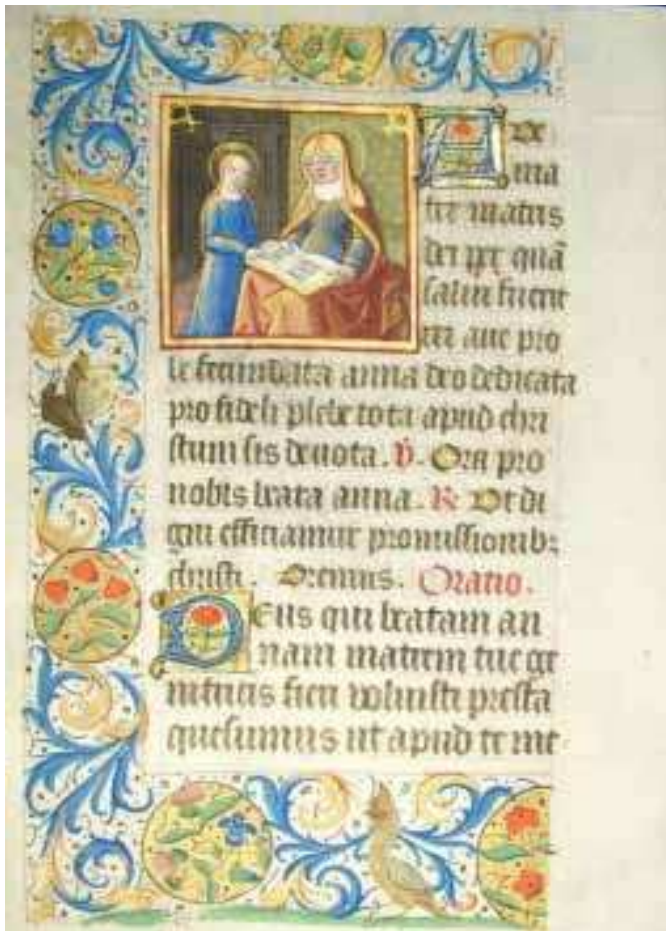 Aue
ma
ter matris
dei per quã
salui
rei aue pro
le fecundata anna deo dedicata
pro fideli plebe tota apud chri
stum sis deuota. V. Ora pro
nobis beata anna. R Vt di
gni efficiamur promissionib:
christi. Oremus. Oratio.
Deus qui beatam an
nam matrem tue ge
nitricis fieri voluisti presta
quesumus ut apud te me